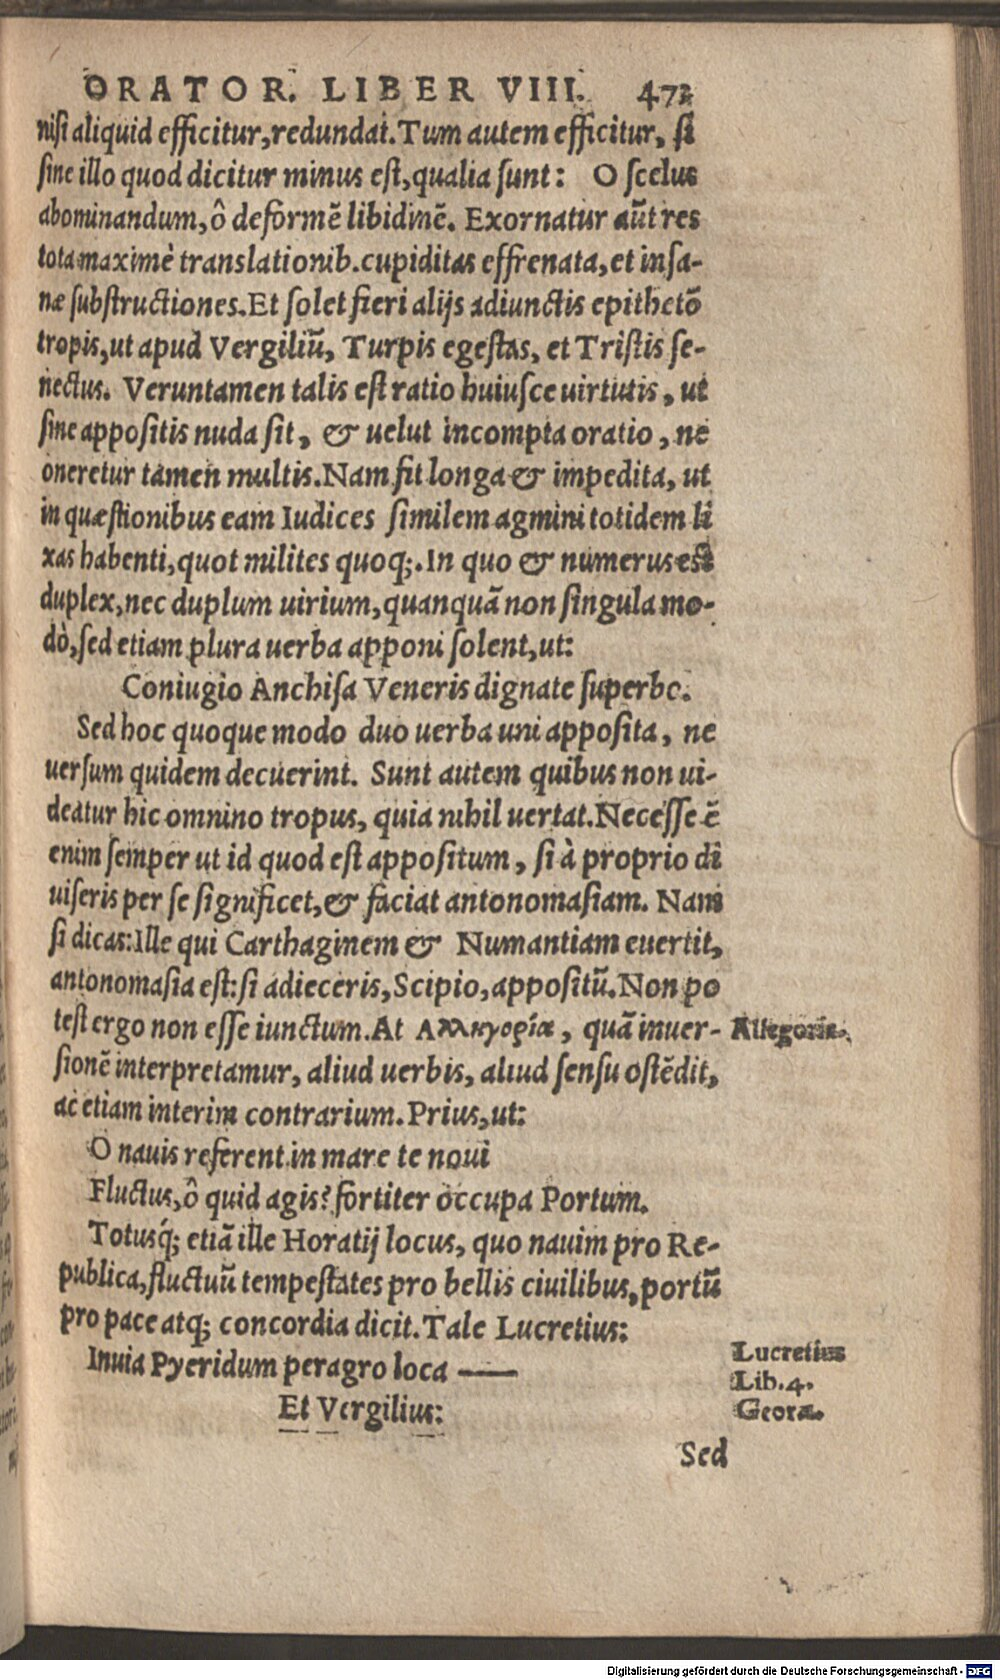 ORATOR. LIBER VIII. 473
nisi aliquid efficitur, redundat. Tum autem efficitur, si
sine illo quod dicitur minus est, qualia sunt: O scelus
abominandum, ô deformē libidinē. Exornatur aūt res
tota maximè translationib. cupiditas effrenata, et insa-
næ substructiones. Et solet fieri alijs adiunctis epithetō
tropis, ut apud Vergiliū, Turpis egestas, et Tristis se-
nectus. Veruntamen talis est ratio huiusce uirtutis, ut
sine appositis nuda sit, & uelut incompta oratio, ne
oneretur tamen multis. Nam fit longa & impedita, ut
in quæstionibus eam Iudices similem agmini totidem li
xas habenti, quot milites quoq;. In quo & numerus est
duplex, nec duplum uirium, quanquā non singula mo-
dò, sed etiam plura uerba apponi solent, ut:
Coniugio Anchisa Veneris dignate superbo.
Sed hoc quoque modo duo uerba uni apposita, ne
uersum quidem decuerint. Sunt autem quibus non ui-
deatur hic omnino tropus, quia nihil uertat. Necesse ē
enim semper ut id quod est appositum, si à proprio di
uiseris per se significet, & faciat antonomasiam. Nam
si dicas: Ille qui Carthaginem & Numantiam euertit,
antonomasia est: si adieceris, Scipio, appositū. Non po
test ergo non esse iunctum. At Αλληγορία, quā inuer-
Allegoria.
sionē interpretamur, aliud uerbis, aliud sensu ostēdit,
ac etiam interim contrarium. Prius, ut:
O nauis referent in mare te noui
Fluctus, ô quid agis? fortiter occupa Portum.
Totusq́; etiā ille Horatij locus, quo nauim pro Re-
publica, fluctuū tempestates pro bellis ciuilibus, portū
pro pace atq; concordia dicit. Tale Lucretius:
Inuia Pyeridum peragro loca ——
Lucretius
Lib. 4.
Et Vergilius:
Georg.
Sed
Digitalisierung gefördert durch die Deutsche Forschungsgemeinschaft - DFG